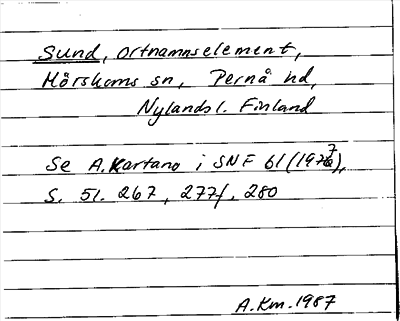 Sund, ortnamnselement,
Mörskoms sn, Pernå hd,
Nylands l. Finland
Se A. Kartano i SNF 61 (1977),
S. 51. 267, 277f. 280
A.Km. 1987